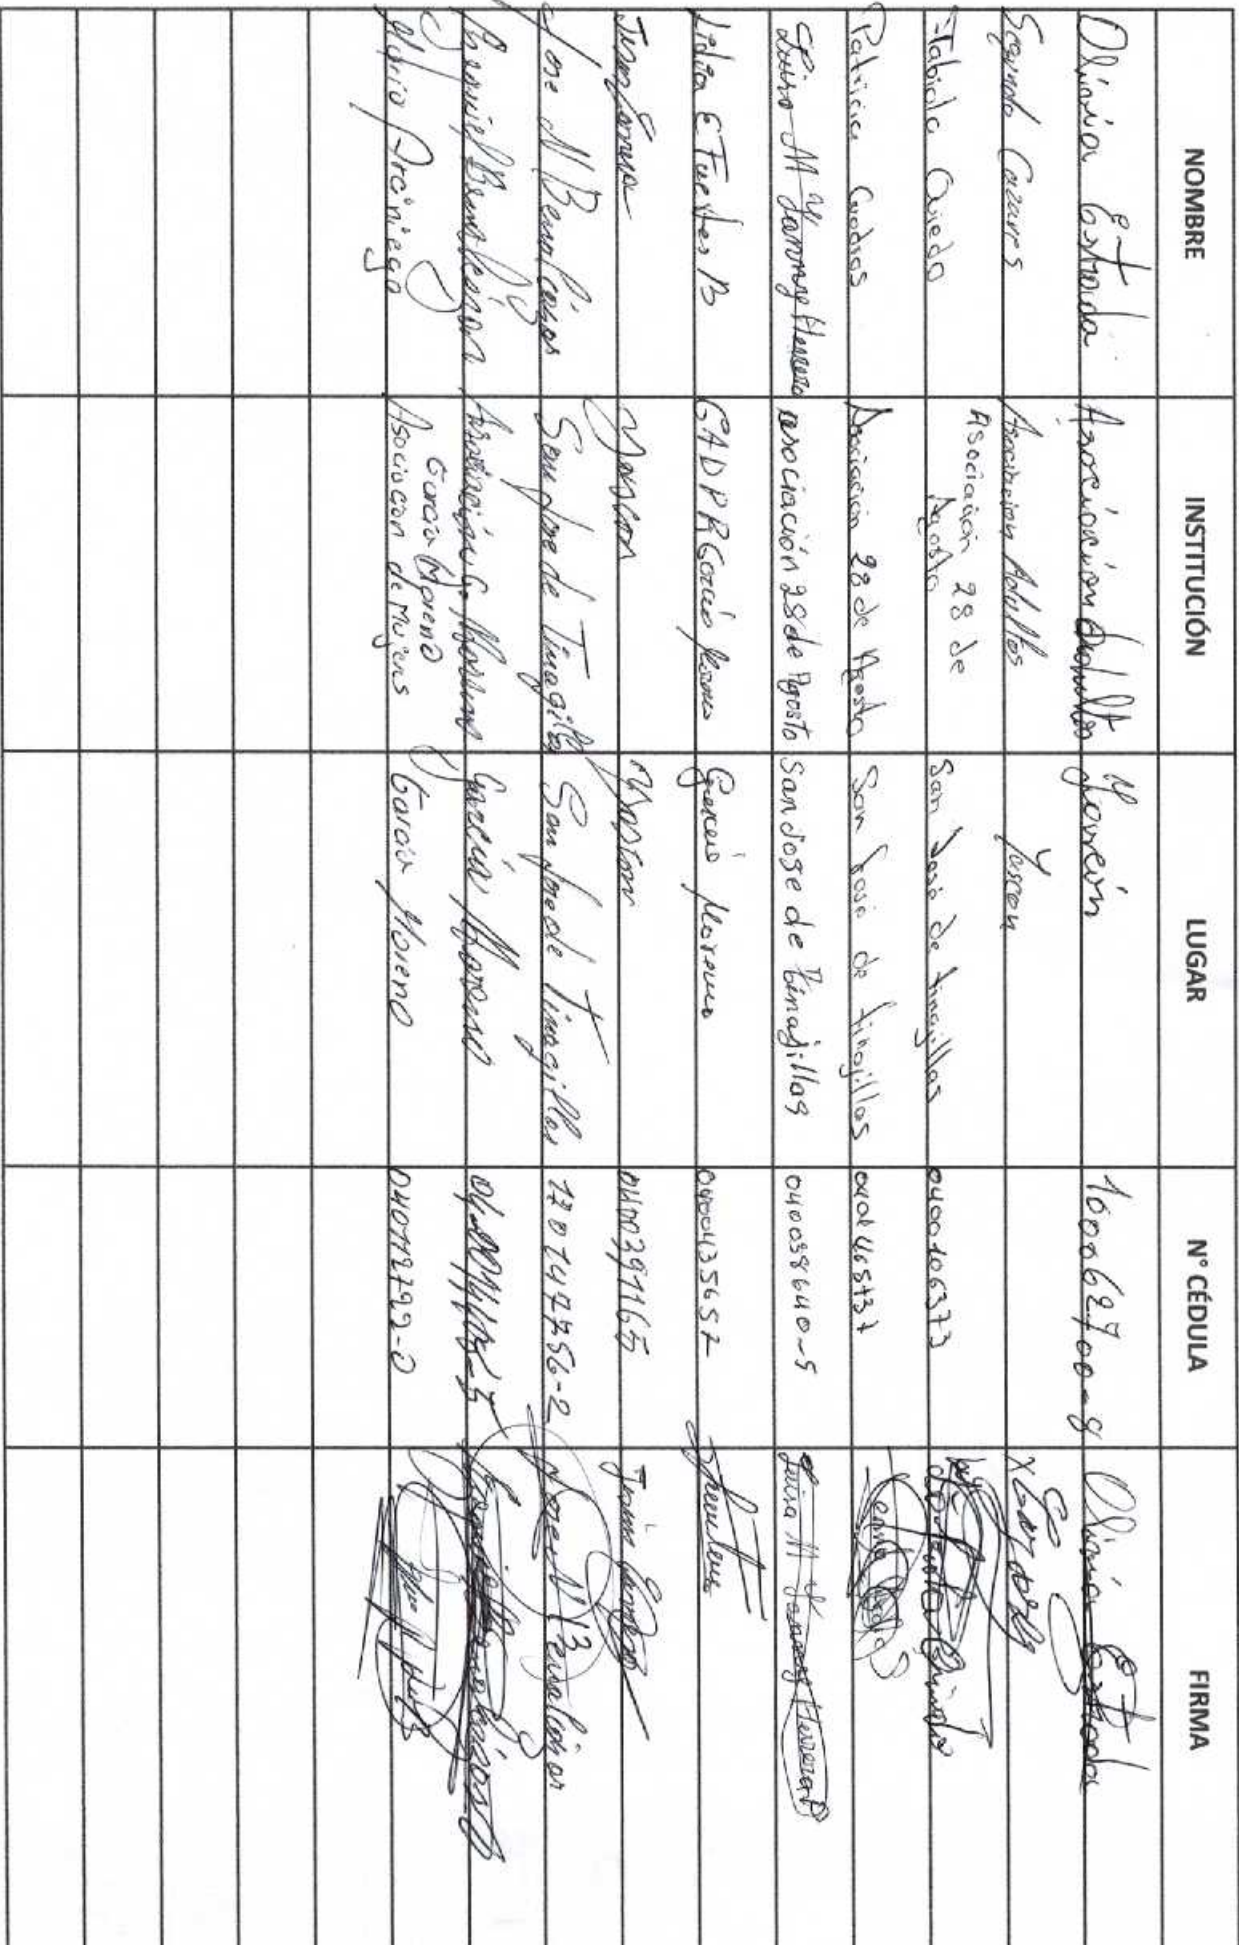 NOMBRE INSTITUCIÓN LUGAR N° CÉDULA FIRMA
Olivia Estrada Asociación Adultos Yascón 100062700-8 Olivia Estrada
Segundo Cazares Asociacion Adultos Yascon
Fabiola Oviedo Asociación 28 de Agosto San José de tinajillas 0400106373
Patricia Cuadros Asociacion 28 de Agosto San José de tinajillas
Luisa M Yanany Herrera asociación 28 de Agosto San Jose de tinajillas 040038640-5 Luisa M Yanany Herrera
Lidia E Fuertes B GADPR García Moreno García Moreno 0400435657 Fuertes
Yascon 0400391165
Jose N Benalcázar San Jose de Tinagillas San Jose de Tinagillas 170147756-2 Jose N Benalcázar
Benalcázar Asociación G. Moreno García Moreno
Mario Arciniega Asociacion de Mujeres García Moreno García Moreno 040112722-0